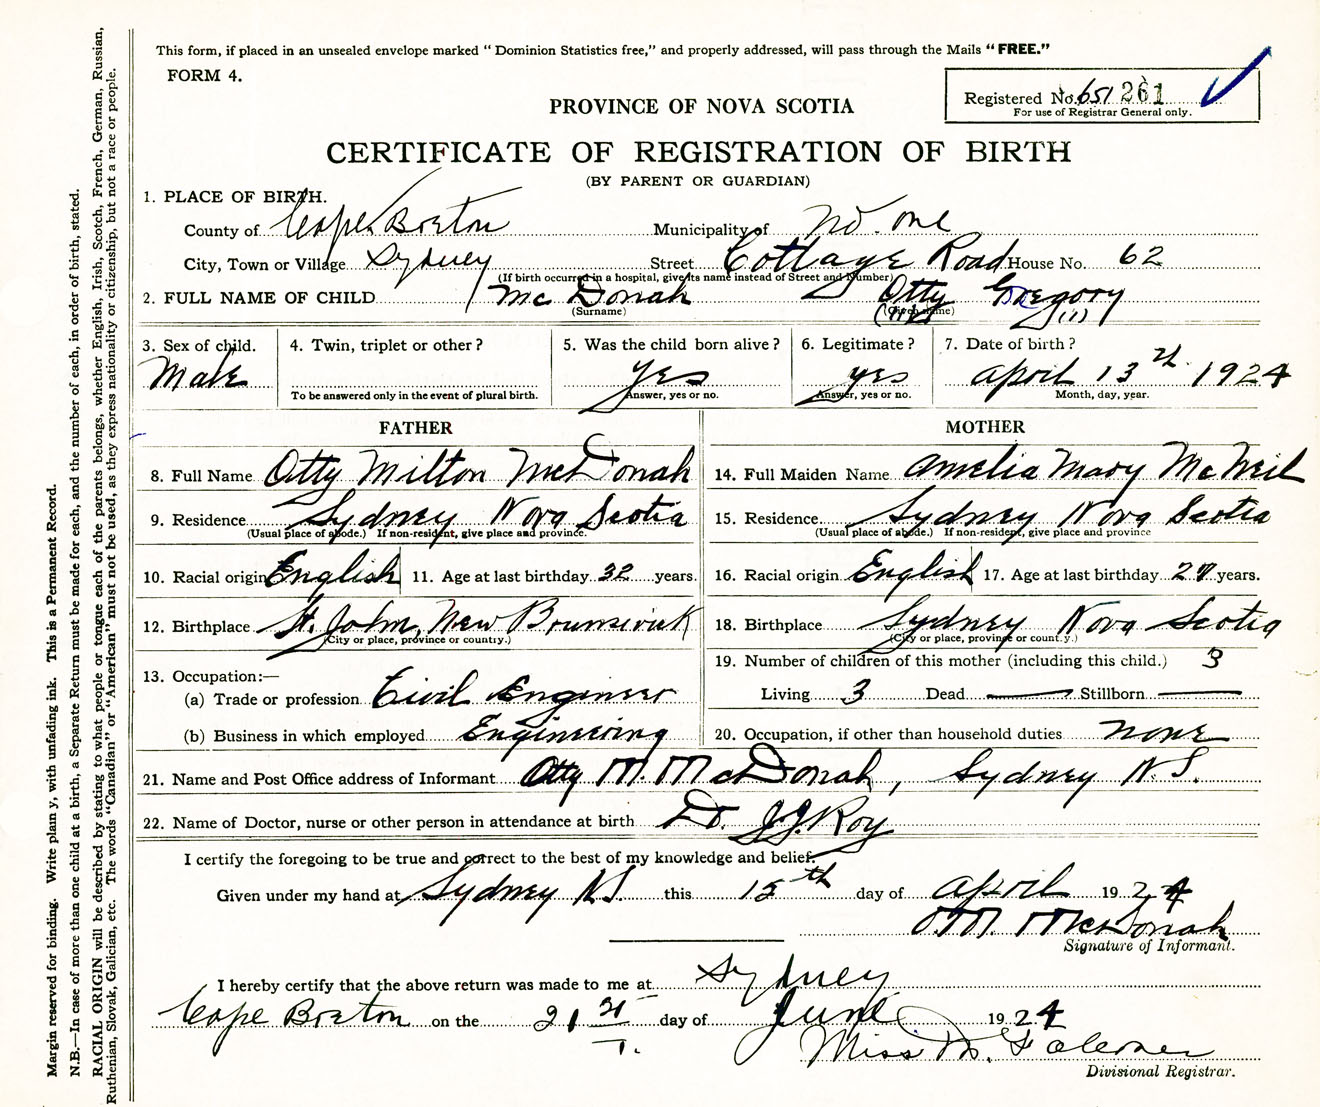 This form, if placed in an unsealed envelope marked "Dominion Statistics free," and properly addressed, will pass through the Mails "FREE."
FORM 4.
Registered No. 651 261
For use of Registrar General only.
PROVINCE OF NOVA SCOTIA
CERTIFICATE OF REGISTRATION OF BIRTH
(BY PARENT OR GUARDIAN)
1. PLACE OF BIRTH.
County of Cape Breton Municipality of No. one
City, Town or Village Sydney Street Cottage Road House No. 62
(If birth occurred in a hospital, give its name instead of Street and Number)
2. FULL NAME OF CHILD McDonah Otty Gregory
(Surname) (Given name) (1)
3. Sex of child. 4. Twin, triplet or other? 5. Was the child born alive? 6. Legitimate? 7. Date of birth?
Male yes yes April 13th 1924
To be answered only in the event of plural birth. Answer, yes or no. Answer, yes or no. Month, day, year.
FATHER MOTHER
8. Full Name Otty Milton McDonah 14. Full Maiden Name Amelia Mary McNeil
9. Residence Sydney Nova Scotia 15. Residence Sydney Nova Scotia
(Usual place of abode.) If non-resident, give place and province. (Usual place of abode.) If non-resident, give place and province
10. Racial origin English 11. Age at last birthday 32 years. 16. Racial origin English 17. Age at last birthday 27 years.
12. Birthplace St. John, New Brunswick 18. Birthplace Sydney Nova Scotia
(City or place, province or country.) (City or place, province or county.)
13. Occupation:— 19. Number of children of this mother (including this child.) 3
(a) Trade or profession Civil Engineer Living 3 Dead — Stillborn —
(b) Business in which employed Engineering 20. Occupation, if other than household duties none
21. Name and Post Office address of Informant Otty M. McDonah, Sydney N.S.
22. Name of Doctor, nurse or other person in attendance at birth Dr. J.J. Roy
I certify the foregoing to be true and correct to the best of my knowledge and belief.
Given under my hand at Sydney N.S. this 15th day of April 1924
O.M. McDonah
Signature of Informant.
I hereby certify that the above return was made to me at Sydney
Cape Breton on the 21st day of June 1924
Miss M. Falconer
Divisional Registrar.
Margin reserved for binding. Write plainy, with unfading ink. This is a Permanent Record.
N.B.—In case of more than one child at a birth, a Separate Return must be made for each, and the number of each, in order of birth, stated.
RACIAL ORIGIN will be described by stating to what people or tongue each of the parents belongs, whether English, Irish, Scotch, French, German, Russian,
Ruthenian, Slovak, Galician, etc. The words "Canadian" or "American" must not be used, as they express nationality or citizenship, but not a race or people.